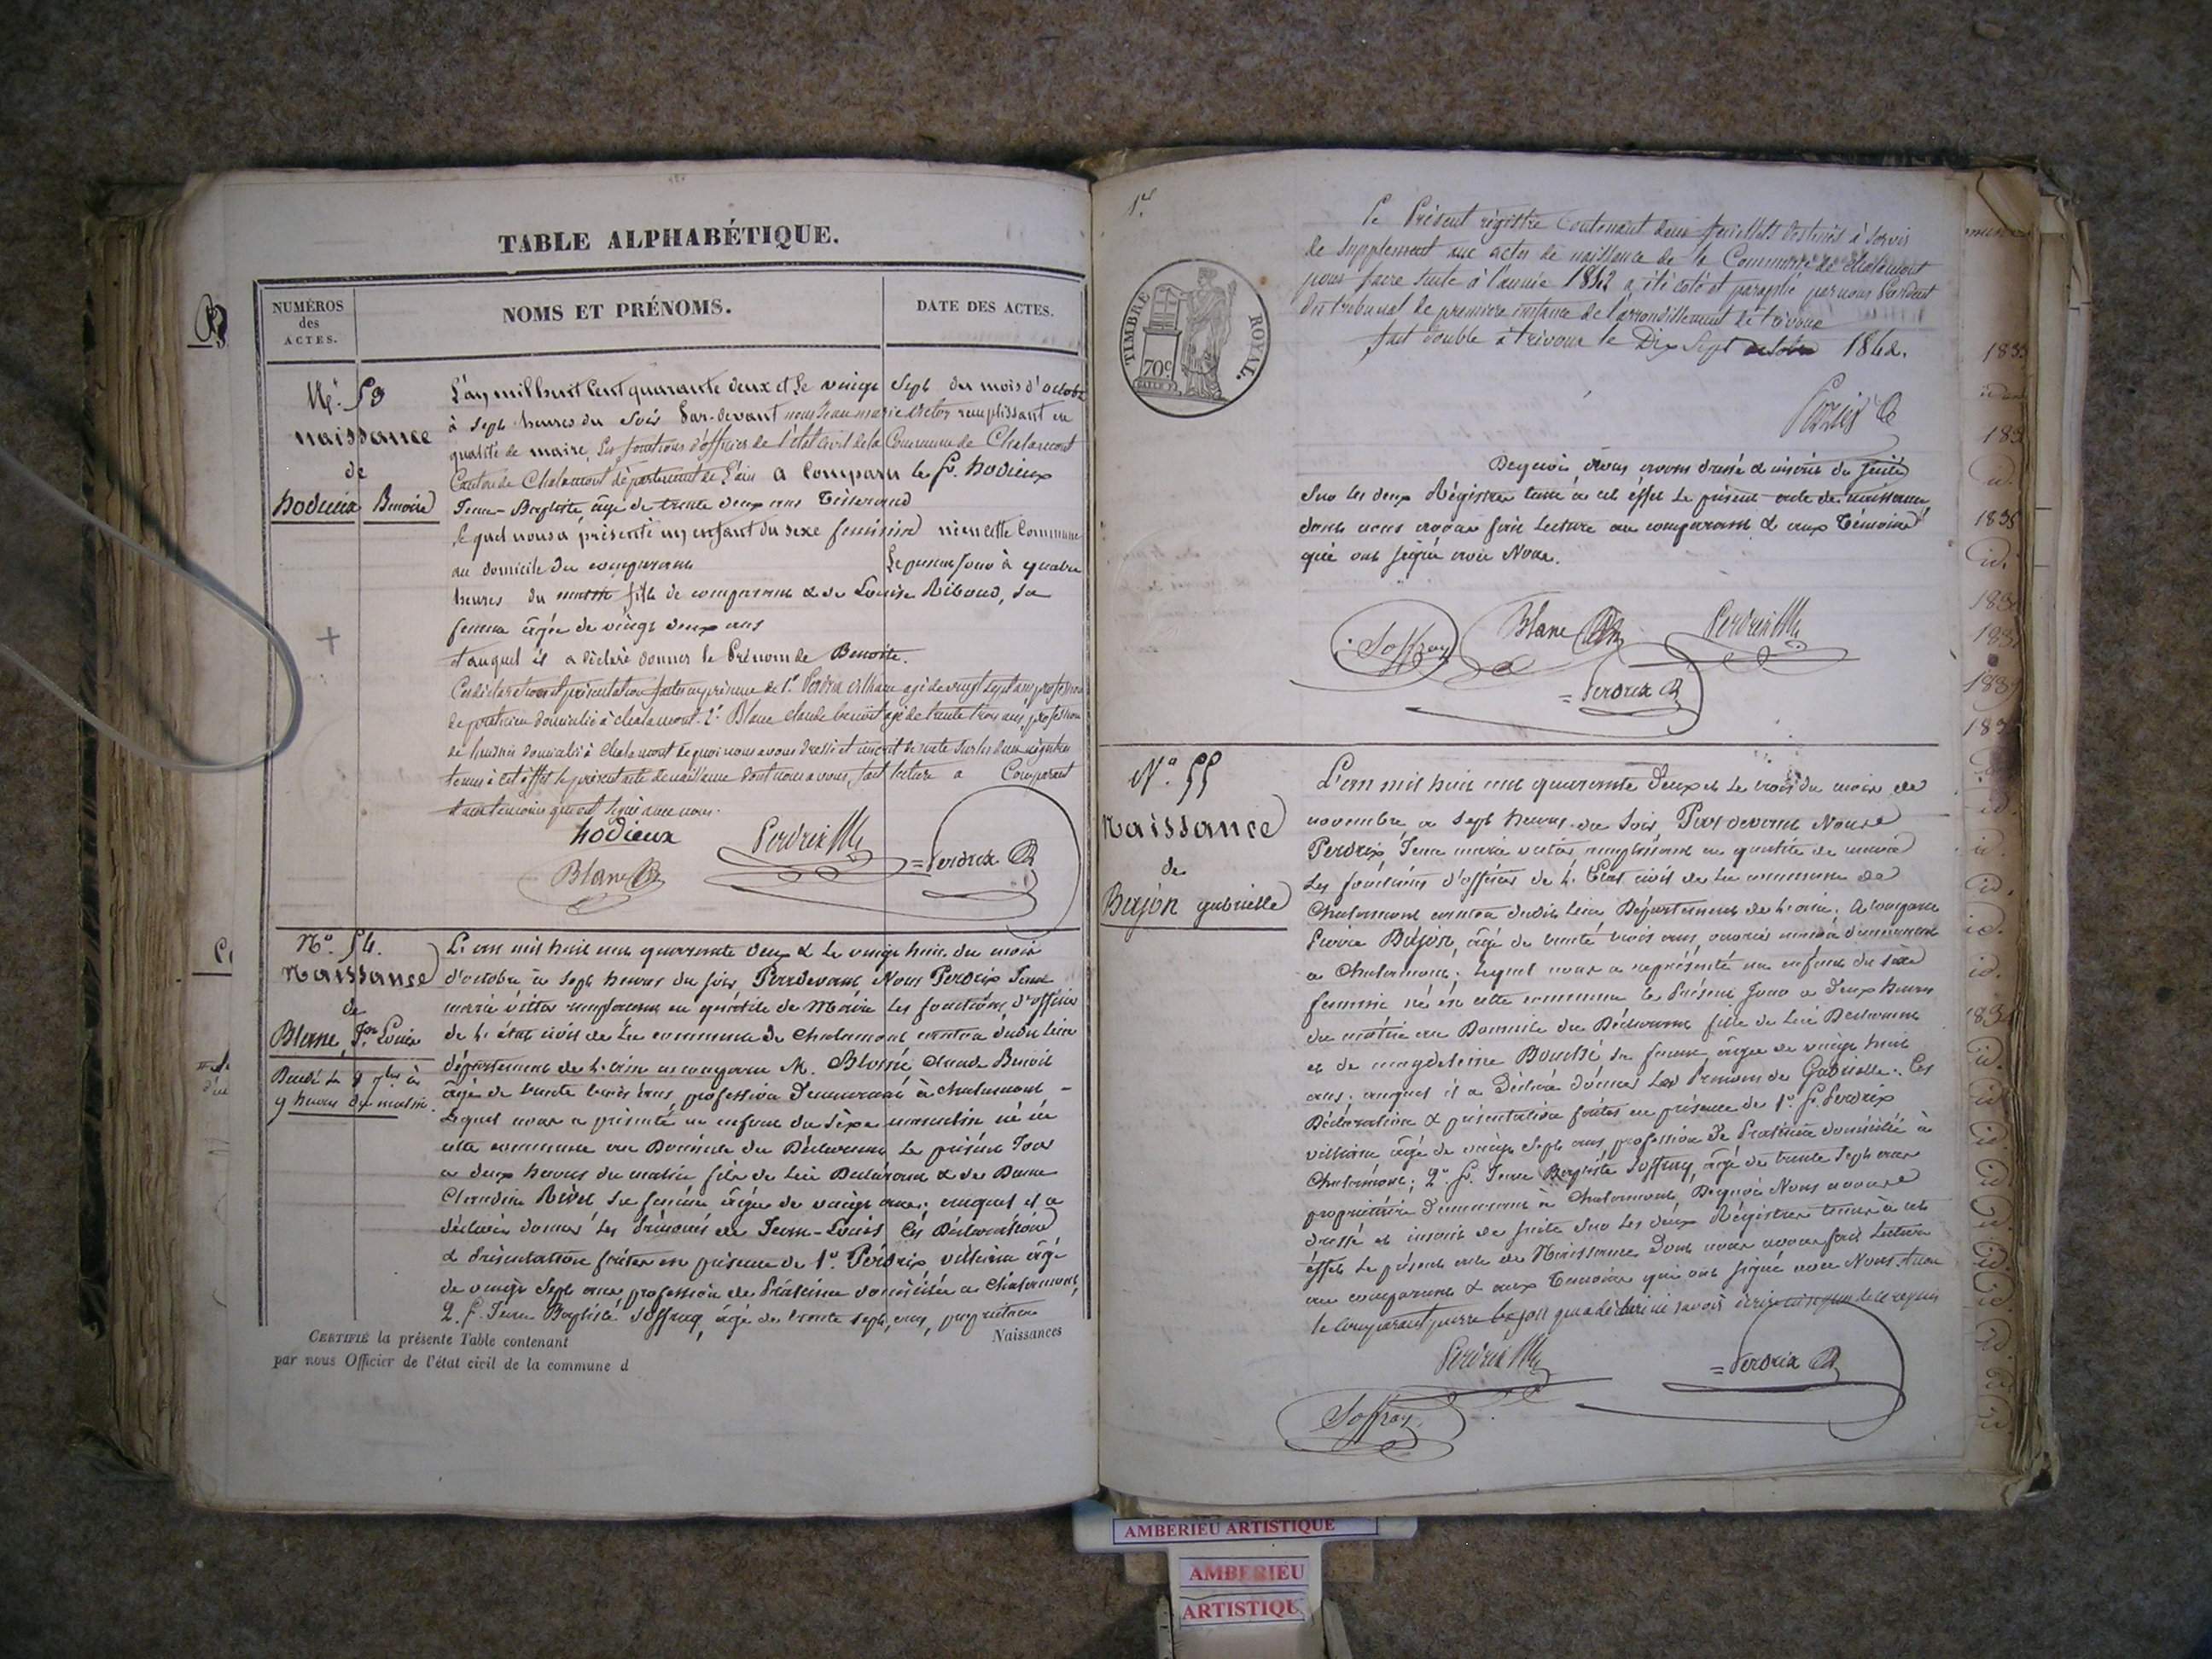 TABLE ALPHABÉTIQUE.
NUMÉROS
des
ACTES.
NOMS ET PRÉNOMS.
DATE DES ACTES.
N.° 53
naissance
de
hodieux Benoite
L'an mil huit Cent quarante deux et le vingt Sept du mois d'octobre
à Sept heures du Soir Par-devant nous Jean marie Victor remplissant en
qualité de maire, les fonctions d'officier de l'état civil de la Commune de Chalamont
Canton de Chalamont département de l'ain a Comparu le Sr. hodieux
Jean-Baptiste, âgé de trente deux ans Tisserand
lequel nous a présenté un enfant du sexe féminin né en cette Commune
au domicile du comparant le présent Jour à quatre
heures du fille de comparant & de Louise Riboud, sa
femme âgée de vingt deux ans
et auquel il a déclaré donner le Prénom de Benoite.
Ces déclaration et présentation faites en présence de 1.° Perdrix agé de vingt sept ans profession
de praticien domicilié à chalamont. 2.° Blanc claude benoit agé de trente trois ans, profession
de huissier domicilié à Chalamont de quoi nous avons dressé et inscrit de suite sur les deux régistres
tenus à cet effet le présent acte de naissance dont nous avons fait lecture a Comparant
& aux temoins qui ont signé avec nous.
hodieux
Perdrix
Blanc
= Perdrix
N.° 54.
Naissance
de
Blanc, Jn. Louis
Décédé le 9 9bre à
9 heures du matin.
L'an mil huit cent quarante deux & le vingt huit du mois
d'octobre à Sept heures du soir Pardevant Nous Perdrix Jean
marie victor remplissant en qualité de Maire les fonctions d'officier
de l'état civil de la commune de Chalamont canton dudit lieu
département de l'ain a comparu M. Blanc Claude Benoit
âgé de trente trois ans, profession d demeurant à chalamont -
Lequel nous a présenté un enfant du Sèxe masculin né en
cette commune au Domicile du Déclarant le présent Jour
a deux heures du matin fils de lui Déclarant & de Dame
Claudine Rivet sa femme âgée de vingt ans; auquel il a
déclaré donner les prénoms de Jean-Louis Ces Déclaration
& présentation faites en présence de 1.° Perdrix âgé
de vingt sept ans profession de Praticien domicilié a Chalamont,
2. S. Jean Baptiste Soffray, âgé de trente sept ans, propriétaire
CERTIFIÉ la présente Table contenant Naissances
par nous Officier de l'état civil de la commune d
1.er
TIMBRE ROYAL.
70c.
Le Présent régistre contenant deux feuillets destinés à servir
de supplement aux actes de naissance de la Commune de chalamont
pour faire suite à l'année 1842 a été coté et paraphé par nous Président
du tribunal de première instance de l'arrondissement de trévoux
fait double à trévoux le Dix Sept octobre 1842.
De quoi, Nous avons dressé & inscrit de Suite
Sur les deux Régistres tenus à cet éffet le présent acte de naissance,
dont nous avons fait lecture au comparant & aux Témoins
qui ont signé avec Nous.
Soffray
Blanc
Perdrix
= Perdrix
N.° 55
Naissance
de
Bajon gabrielle
L'an mil huit cent quarante Deux et le trois du mois de
novembre a sept heures du Soir, Par devant Nous
Perdrix, Jean marie victor remplissant en qualité de maire
les fonctions d'officier de l'Etat civil de la commune de
Chalamont canton dudit lieu Département de l'ain; a comparu
Pierre Bajon, âgé de trente trois ans, demeurant
a Chalamont; lequel nous a représenté un enfant du sèxe
feminin né en cette commune le Présent Jour a Deux heures
du matin au Domicile du Déclarant fille de lui Déclarant
et de magdeleine sa femme âgée de vingt huit
ans; auquel il a Déclaré donner Les Prenoms de Gabrielle: Ces
Déclaration & présentation faites en présence de 1.° S. Perdrix
âgé de vingt Sept ans profession de Praticien domicilié à
Chalamont; 2.° S. Jean Baptiste Soffray, âgé de trente Sept ans
propriétaire demeurant à Chalamont, De quoi Nous avons
dressé et inscrit de suite Sur Les deux Régistres tenus à cet
éffet le présent acte de Naissance Dont nous avons fait Lecture
au comparant & aux Temoins qui ont signé avec Nous
le Comparant pierre bajon qui a déclaré ne savoir écrire de ce requis
Perdrix
= Perdrix
Soffray
AMBERIEU ARTISTIQUE
AMBERIEU
ARTISTIQU